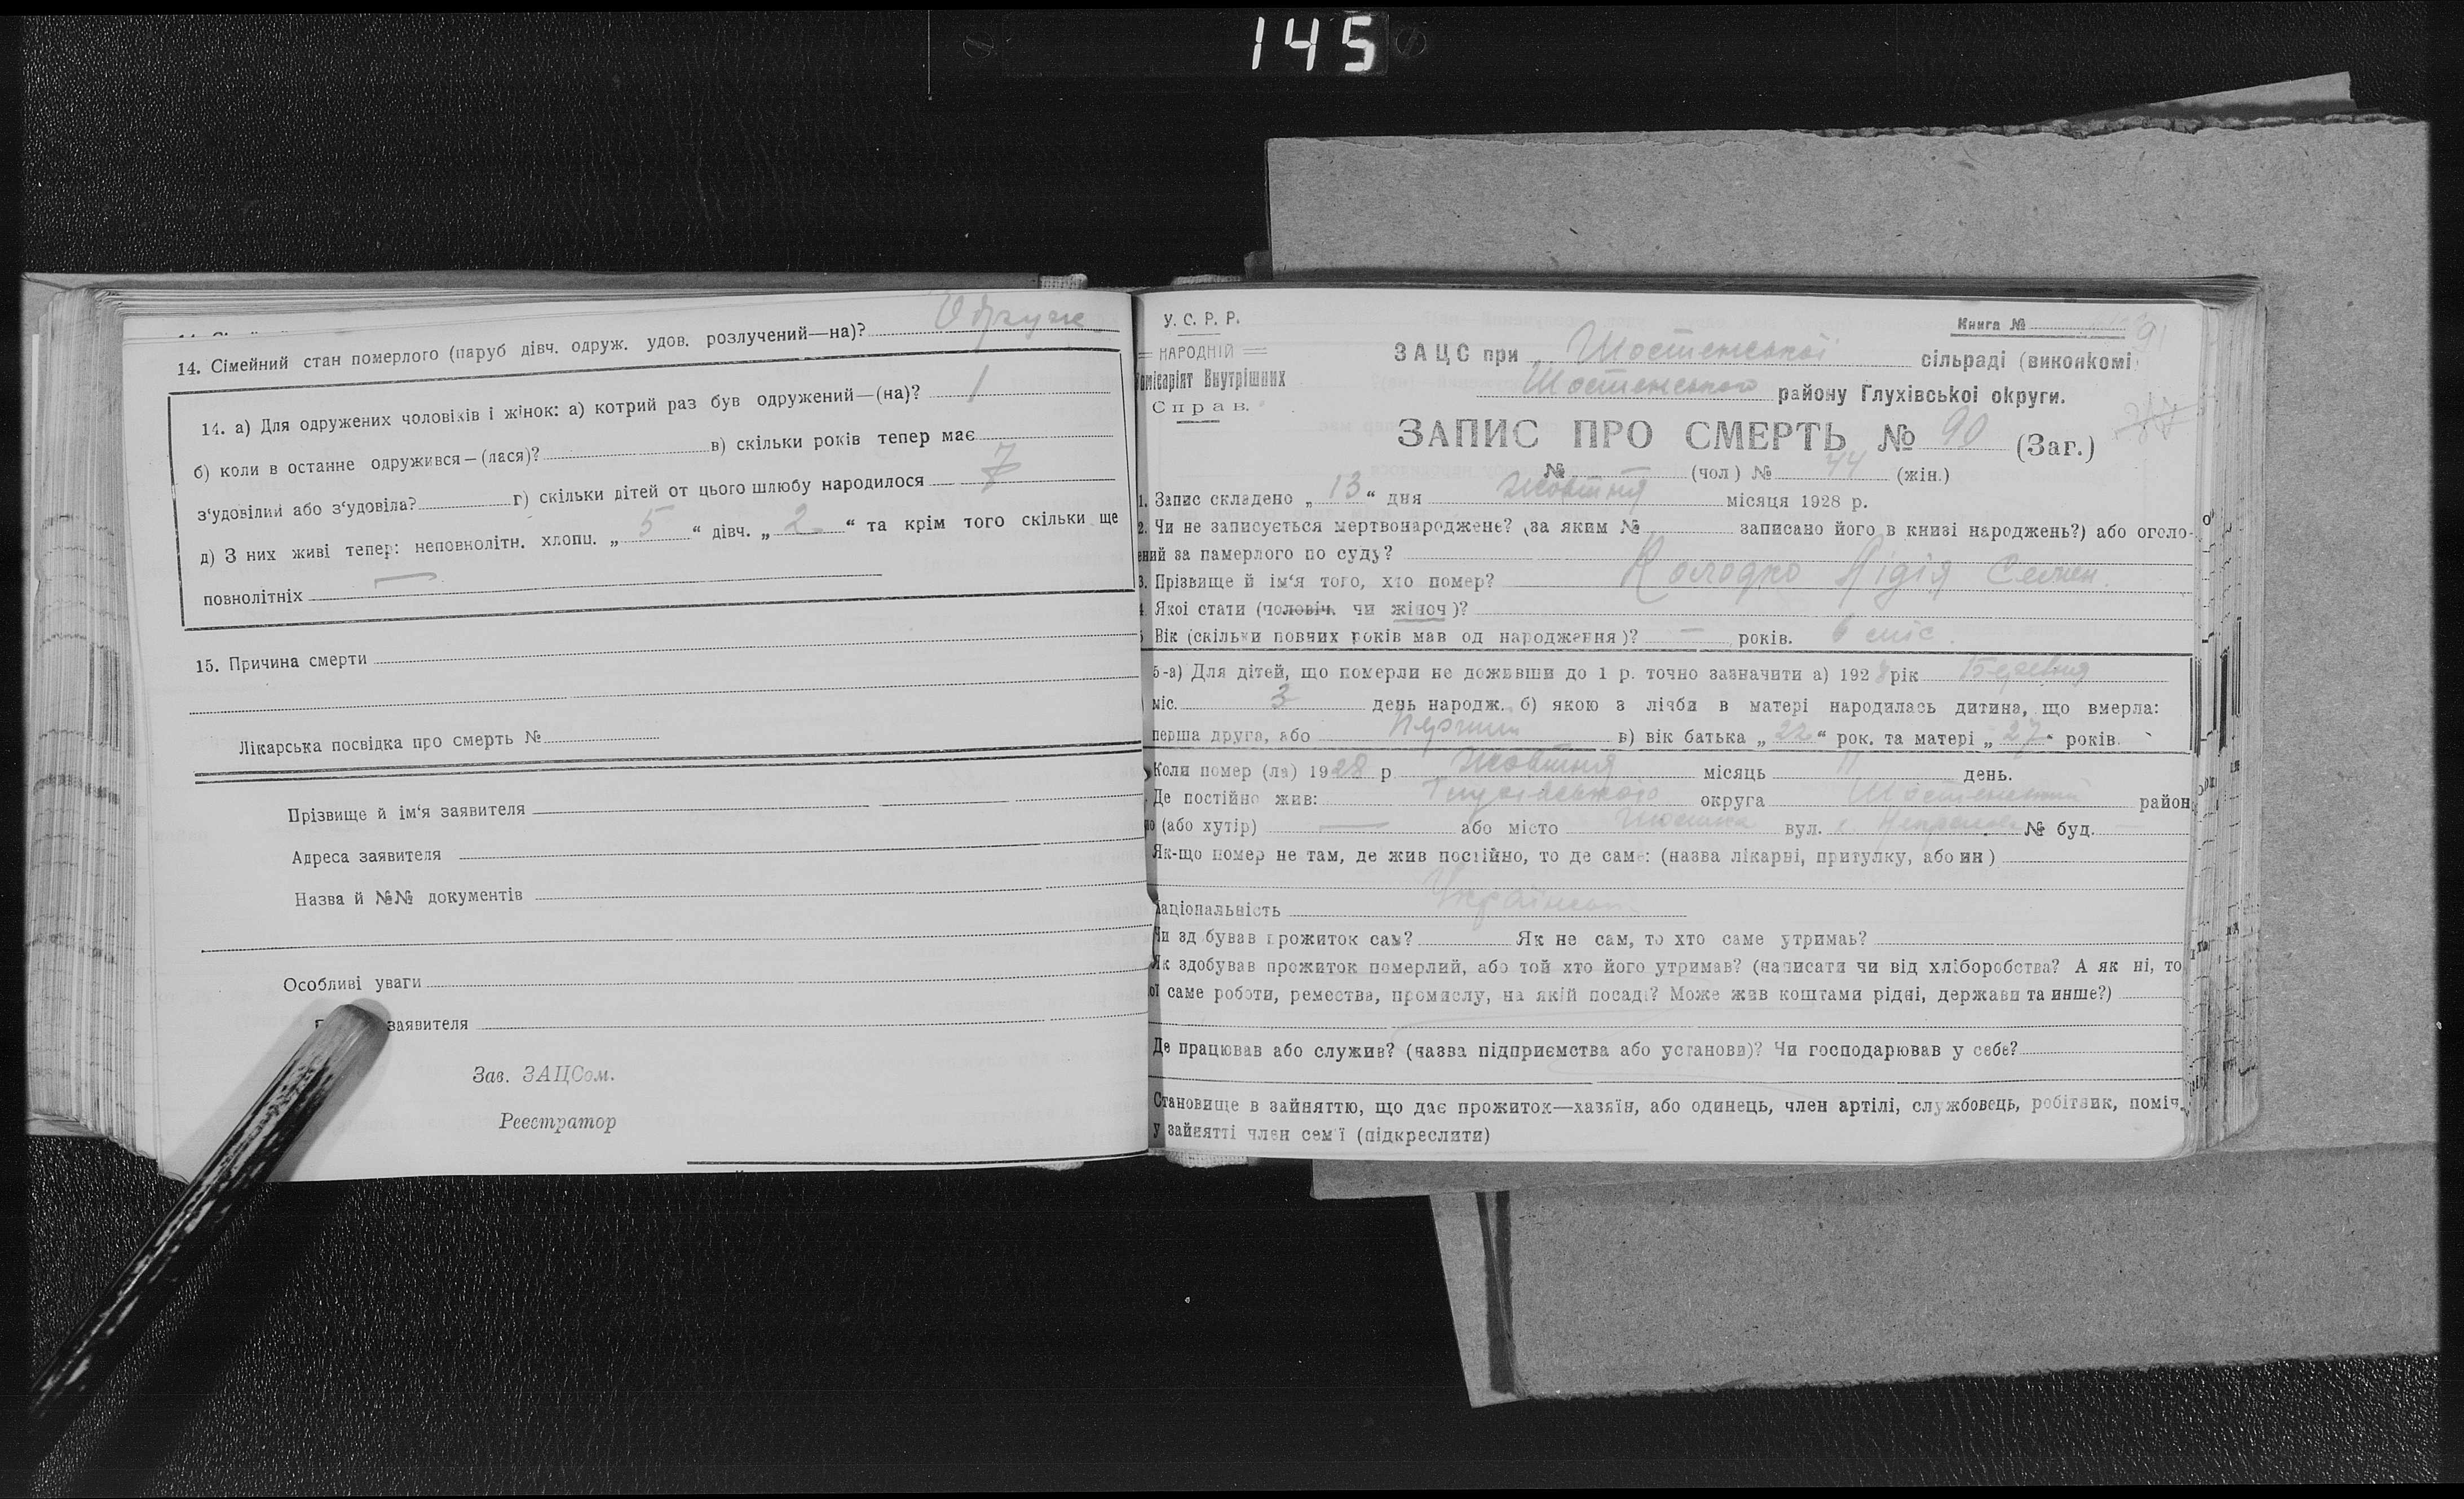 145
14. Сімейний стан померлого (паруб дівч. одруж. удов. розлучений—на)? Одруж
14. а) Для одружених чоловіків і жінок: а) котрий раз був одружений—(на)? 1
б) коли в останнє одружився—(лася)? в) скільки років тепер має
з'удовілий або з'удовіла? г) скільки дітей от цього шлюбу народилося 7
д) З них живі тепер: неповнолітн. хлопц. „ 5 “ дівч. „ 2 “ та крім того скільки ще
повнолітніх —
15. Причина смерти
Лікарська посвідка про смерть №
Прізвище й ім'я заявителя
Адреса заявителя
Назва й №№ документів
Особливі уваги
заявителя
Зав. ЗАЦСом.
Реєстратор
У. С. Р. Р.
Книга № 91
НАРОДНІЙ
Комісаріят Внутрішних
Справ.
ЗАЦС при Шостенської сільраді (виконкомі)
Шостенського району Глухівської округи.
ЗАПИС ПРО СМЕРТЬ № 90 (Заг.)
№ (чол) № 44 (жін.)
1. Запис складено „ 13 “ дня Жовтня місяця 1928 р.
2. Чи не записується мертвонароджене? (за яким № записано його в книзі народжень?) або оголо-
ений за памерлого по суду?
3. Прізвище й ім'я того, хто помер? Колодко Лідія Семен.
4. Якої стати (чоловіч. чи жіноч)?
5 Вік (скільки повних років мав од народження)? — років. 6 міс.
5-а) Для дітей, що померли не доживши до 1 р. точно зазначити а) 1928 рік Березня
міс. 3 день народж. б) якою з лічби в матері народилась дитина, що вмерла:
перша друга, або в) вік батька „ 22 “ рок. та матері „ 27 “ років.
Коли помер (ла) 1928 р Жовтня місяць 11 день.
Де постійно жив: Глухівського округа Шостенський район
(або хутір) — або місто Шостка вул. № буд. —
Як-що помер не там, де жив постійно, то де саме: (назва лікарні, притулку, або ин)
Національність
Чи здобував прожиток сам? Як не сам, то хто саме утримав?
Як здобував прожиток померлий, або той хто його утримав? (написати чи від хліборобства? А як ні, то
ої саме роботи, ремества, промислу, на якій посаді? Може жив коштами рідні, держави та инше?)
Де працював або служив? (назва підприємства або установи)? Чи господарював у себе?
Становище в зайняттю, що дає прожиток—хазяїн, або одинець, член артілі, службовець, робітник, поміч.
у зайнятті член сем'ї (підкреслити)